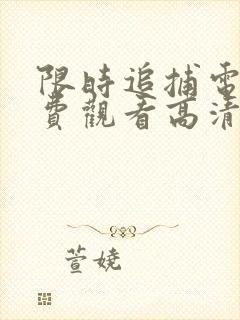 限時追捕電
費觀看高清
萱嬈